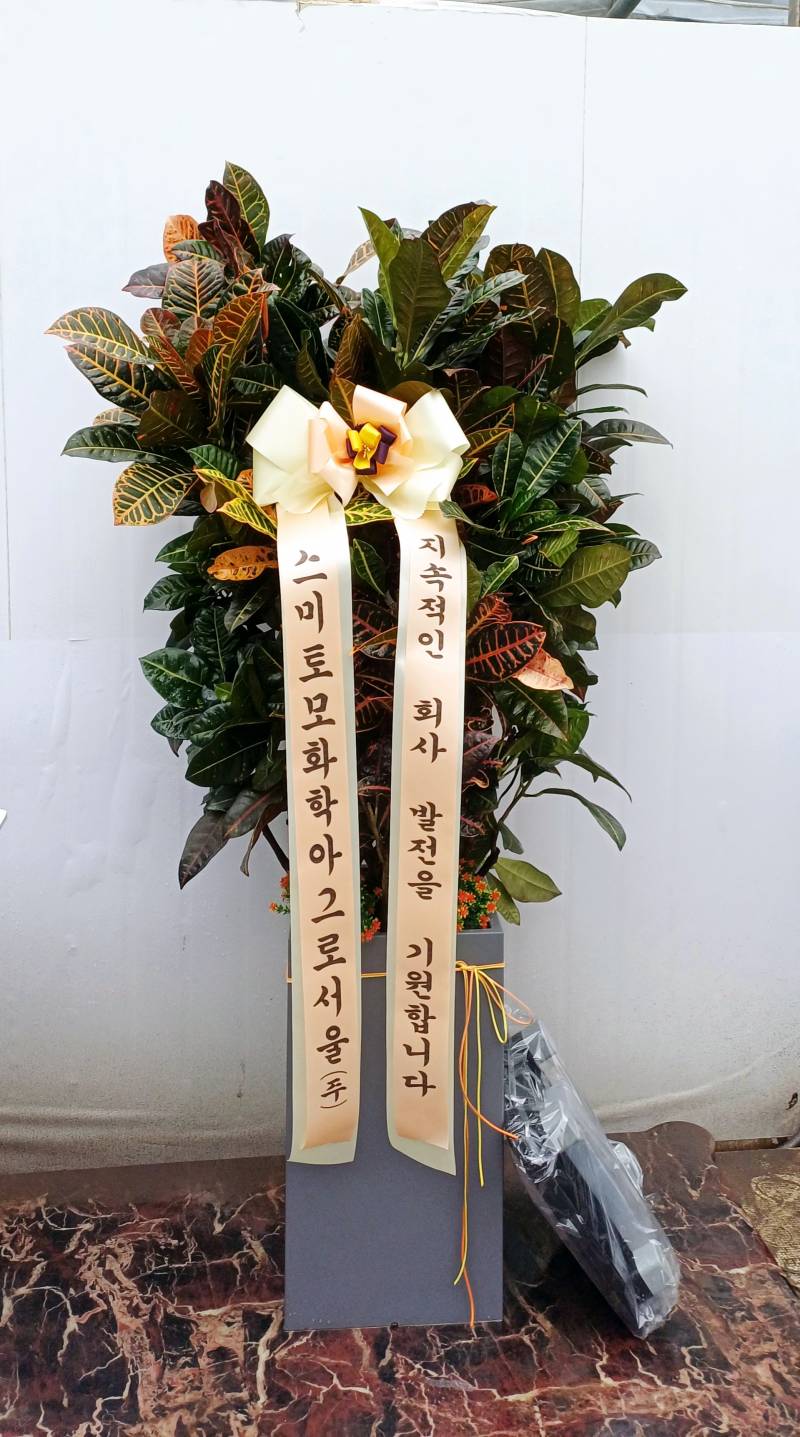 스미토모화학아그로서울(주)
지속적인 회사 발전을 기원합니다